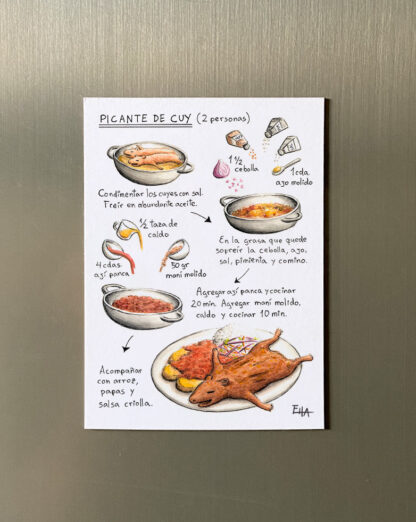 PICANTE DE CUY (2 personas)
1 ½
cebolla
1 cda.
ajo molido
Condimentar los cuyes con sal.
Freír en abundante aceite.
½ taza de
caldo
4 cdas
ají panca
50 gr
maní molido
En la grasa que quede
sofreír la cebolla, ajo,
sal, pimienta y comino.
Agregar ají panca y cocinar
20 min. Agregar maní molido,
caldo y cocinar 10 min.
Acompañar
con arroz,
papas y
salsa criolla.